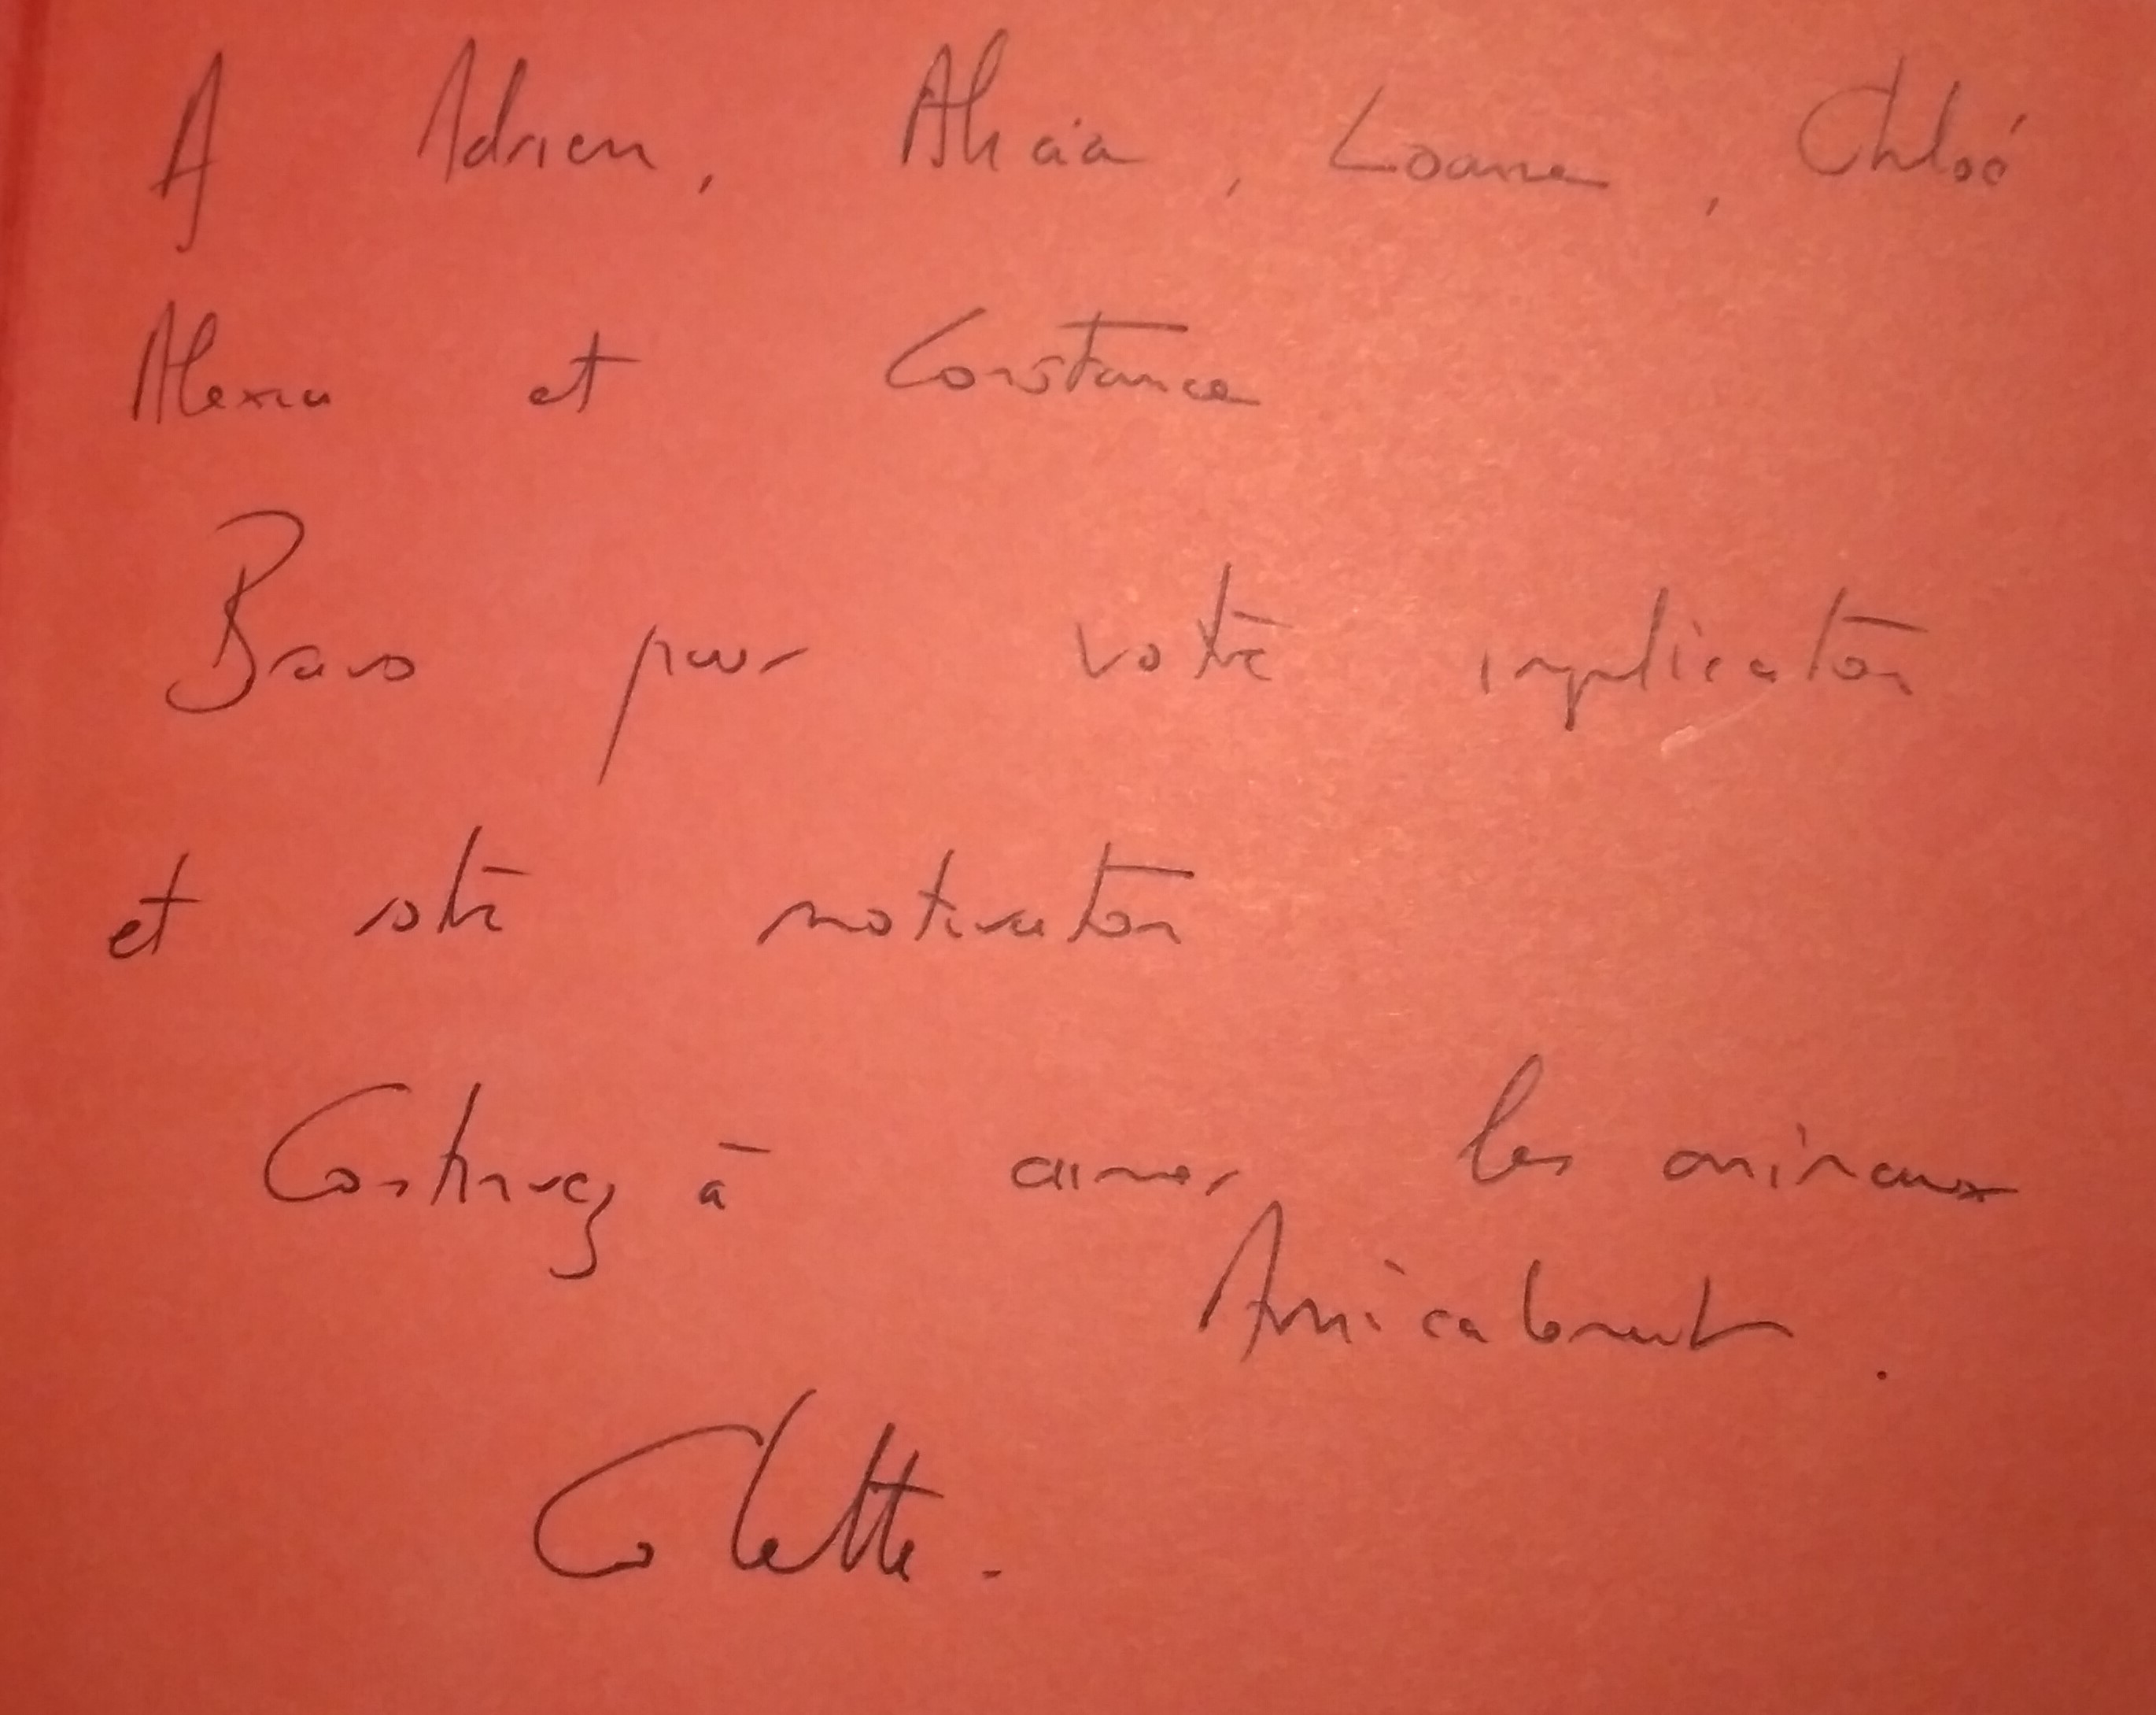 A Adrien, Alicia, Loane, Chloé
Alexia et Constance
Bravo pour votre implication
et votre motivation
Continuez à aimer les animaux
Amicalement.
Colette.